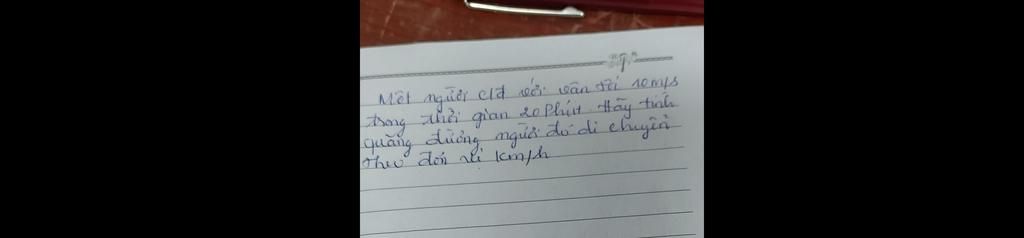 Một người c/đ với vận tốc 10m/s
trong thời gian 20 phút. Hãy tính
quãng đường người đó di chuyển
theo đơn vị km/h